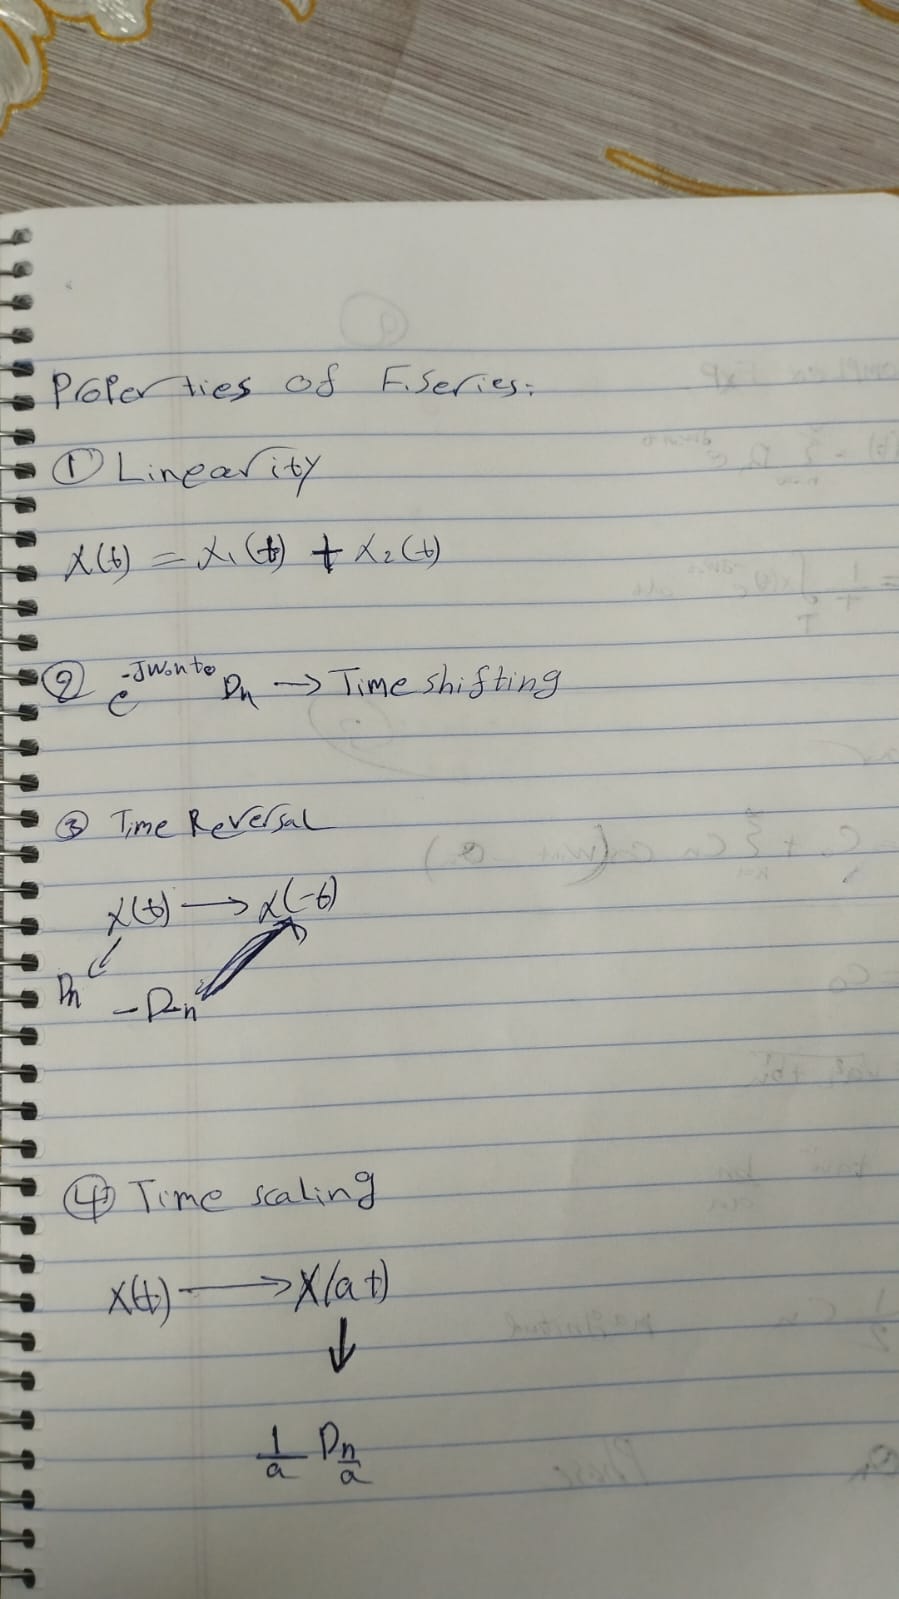 Properties of F.series:
① Linearity
x(t) = x₁(t) + x₂(t)
② e^-Jwonto Dn → Time shifting
③ Time Reversal
x(t) → x(-t)
Dn
-D-n
④ Time scaling
x(t) → x(at)
↓
1/a Dn/a